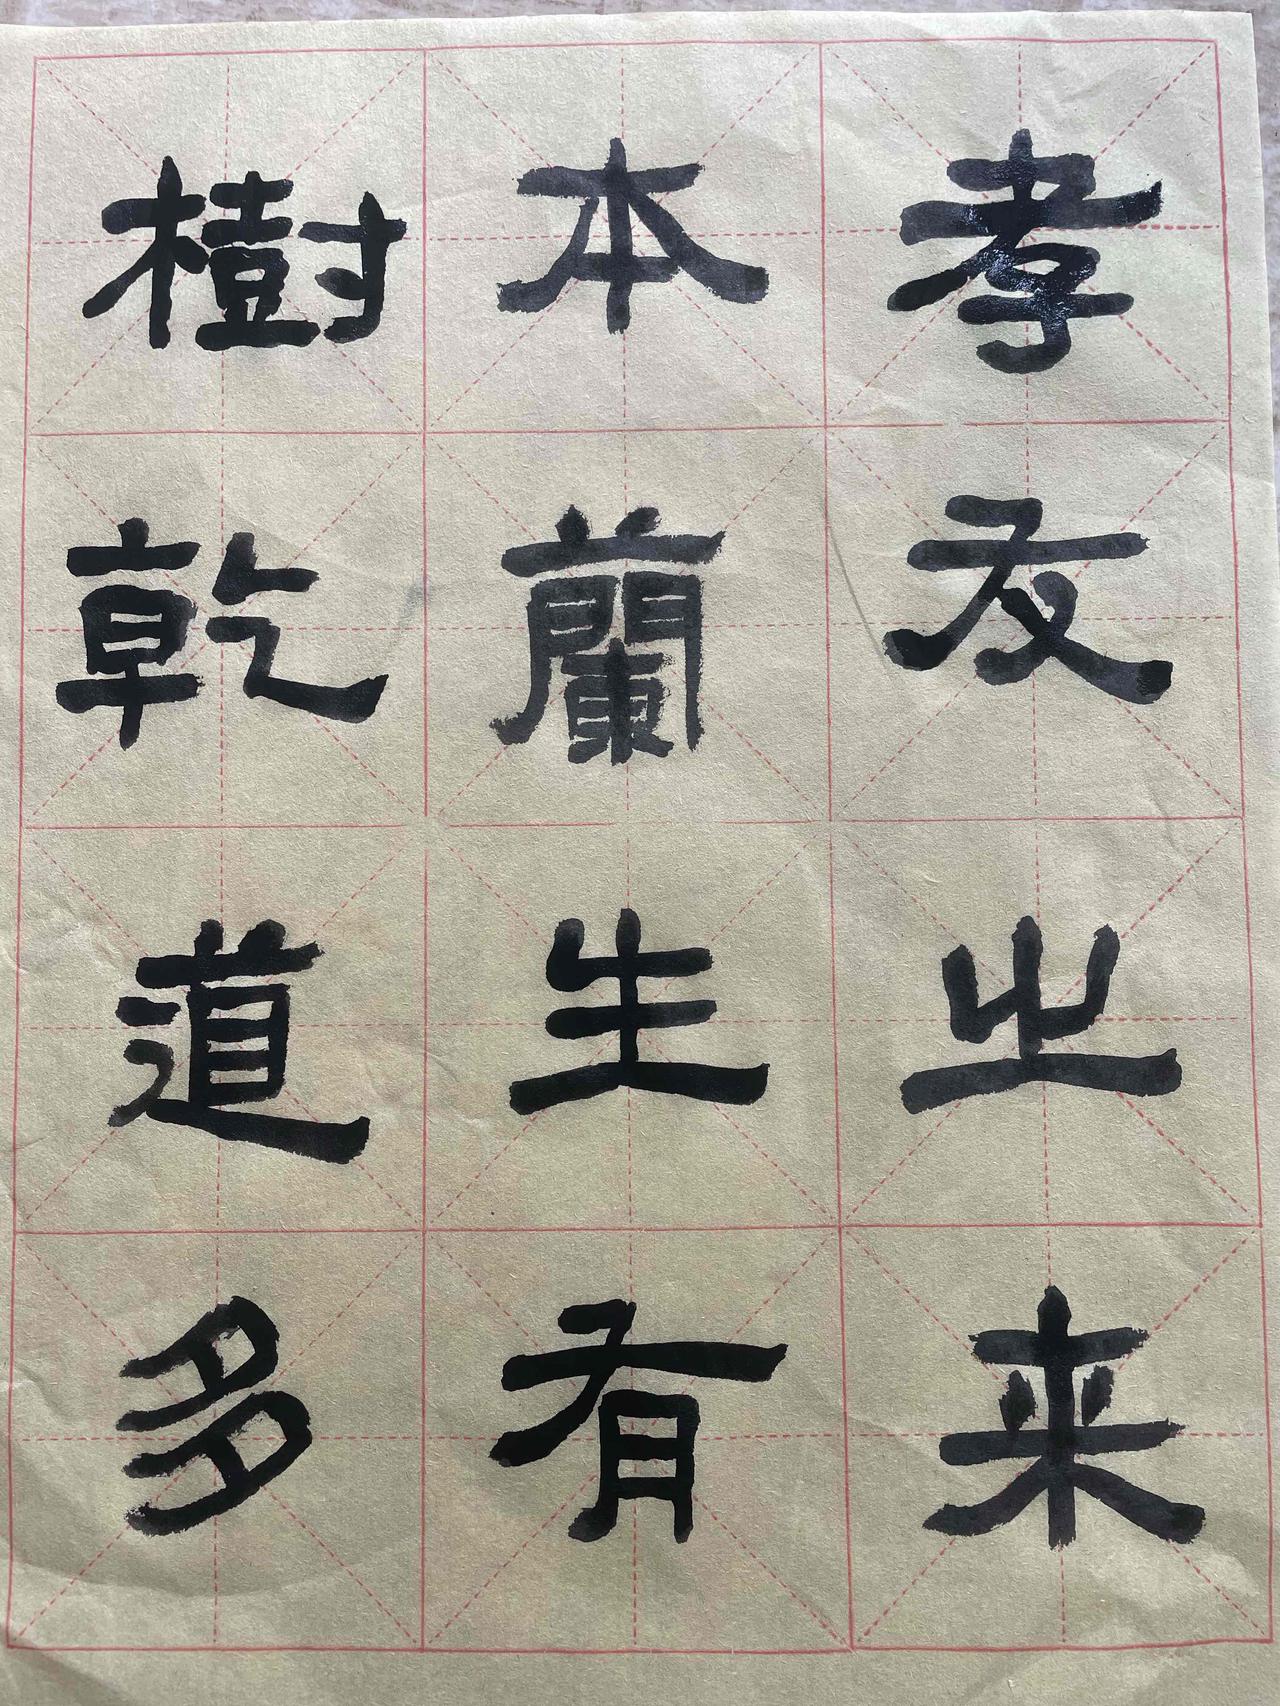 孝友之来
本蘭生有
樹乾道多